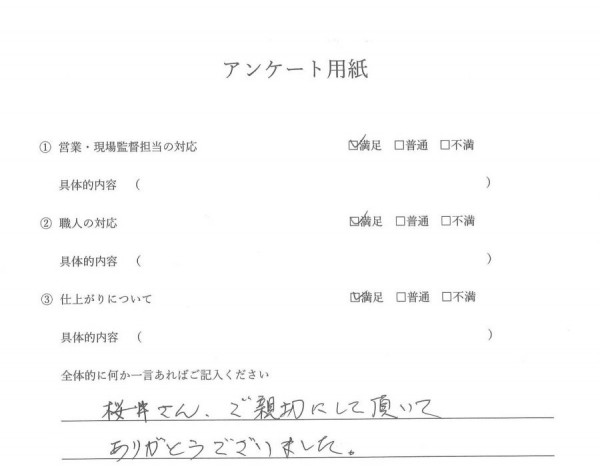 アンケート用紙
① 営業・現場監督担当の対応 ☑満足 □普通 □不満
具体的内容 （ ）
② 職人の対応 ☑満足 □普通 □不満
具体的内容 （ ）
③ 仕上がりについて ☑満足 □普通 □不満
具体的内容 （ ）
全体的に何か一言あればご記入ください
桜井さん、ご親切にして頂いて
ありがとうございました。